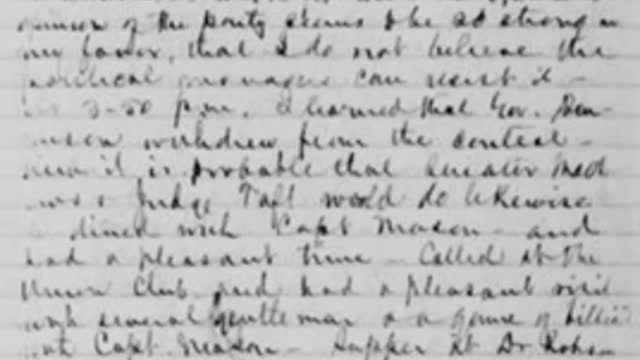 opinion of the party seems to be so strong in
my favor, that I do not believe the
political managers can resist it -
3-50 p.m. I learned that Gov. Den-
nison withdrew from the contest -
and it is probable that Senator Matt
hews & Judge Taft would do likewise
dined with Capt Mason - and
had a pleasant time - Called at the
Union Club and had a pleasant visit
with several gentleman & a game of billi
with Capt. Mason - Supper at Dr